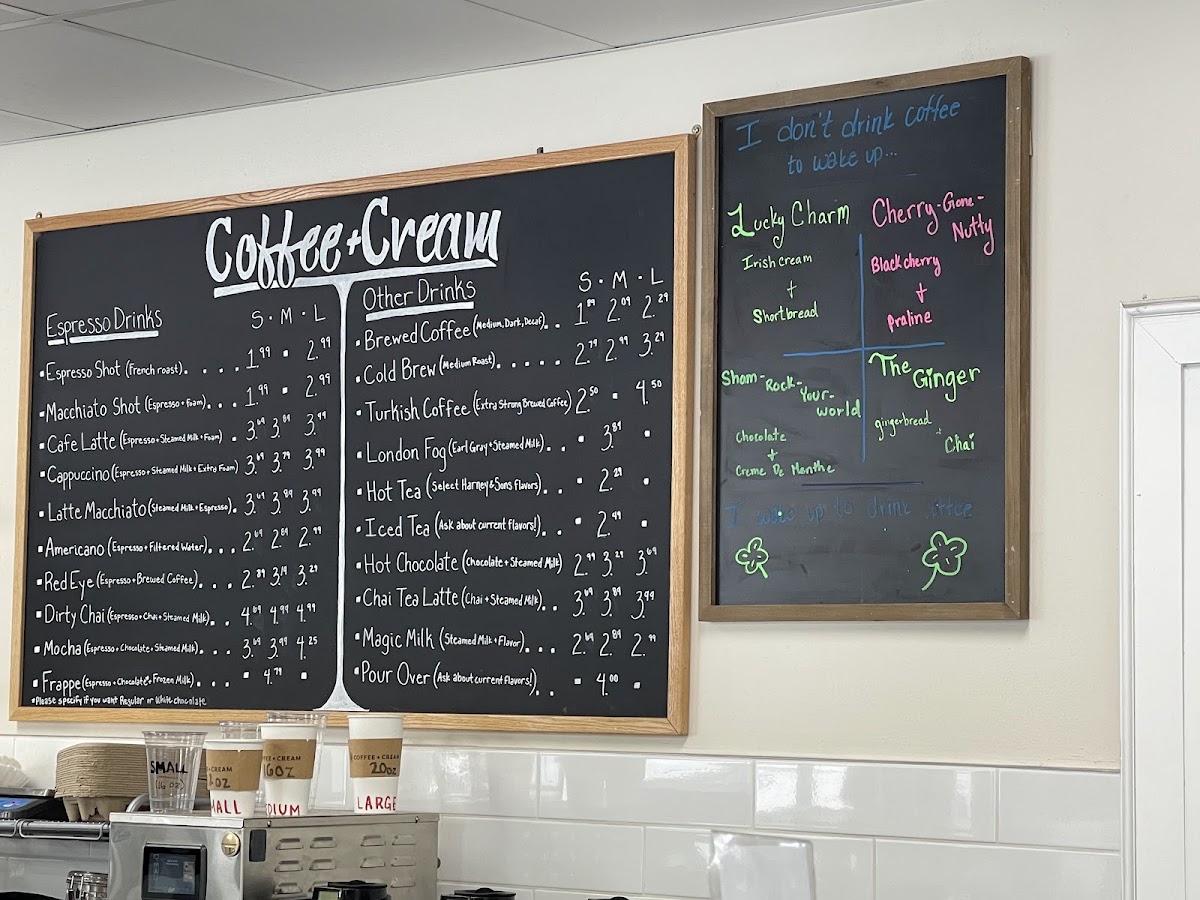 Coffee + Cream
Espresso Drinks
S · M · L
▪ Espresso Shot (French roast). . . . 1.99 ▪ 2.99
▪ Macchiato Shot (Espresso + Foam). . . 1.99 ▪ 2.99
▪ Cafe Latte (Espresso + Steamed Milk + Foam) . 3.69 3.89 3.99
▪ Cappuccino (Espresso + Steamed Milk + Extra Foam) 3.69 3.79 3.99
▪ Latte Macchiato (Steamed Milk + Espresso). 3.69 3.89 3.99
▪ Americano (Espresso + Filtered Water). . . 2.69 2.89 2.99
▪ Red Eye (Espresso + Brewed Coffee). . . 2.89 3.19 3.29
▪ Dirty Chai (Espresso + Chai + Steamed Milk). . 4.69 4.99 4.99
▪ Mocha (Espresso + Chocolate + Steamed Milk). . . 3.69 3.99 4.25
▪ Frappe (Espresso + Chocolate + Frozen Milk). . . . ▪ 4.79 ▪
*Please specify if you want Regular or White chocolate
Other Drinks
S · M · L
▪ Brewed Coffee (Medium, Dark, Decaf). . 1.89 2.09 2.29
▪ Cold Brew (Medium Roast). . . . . . 2.79 2.99 3.29
▪ Turkish Coffee (Extra Strong Brewed Coffee) 2.50 ▪ 4.50
▪ London Fog (Earl Gray + Steamed Milk). . ▪ 3.89 ▪
▪ Hot Tea (Select Harney & Sons flavors). . ▪ 2.29 ▪
▪ Iced Tea (Ask about current flavors!). . ▪ 2.49 ▪
▪ Hot Chocolate (Chocolate + Steamed Milk) 2.99 3.29 3.69
▪ Chai Tea Latte (Chai + Steamed Milk). . 3.69 3.89 3.99
▪ Magic Milk (Steamed Milk + Flavor). . . 2.69 2.89 2.99
▪ Pour Over (Ask about current flavors!). . ▪ 4.00 ▪
I don't drink coffee
to wake up...
Lucky Charm
Irish cream
+
Shortbread
Cherry-Gone-
Nutty
Black cherry
+
praline
Sham-Rock-
Your-
world
Chocolate
+
Creme De Menthe
The Ginger
gingerbread
+
Chai
I wake up to drink
SMALL
(16 OZ)
OZ
MALL
FEE + CREAM
16OZ
DIUM
COFFEE + CREAM
20oz
LARGE